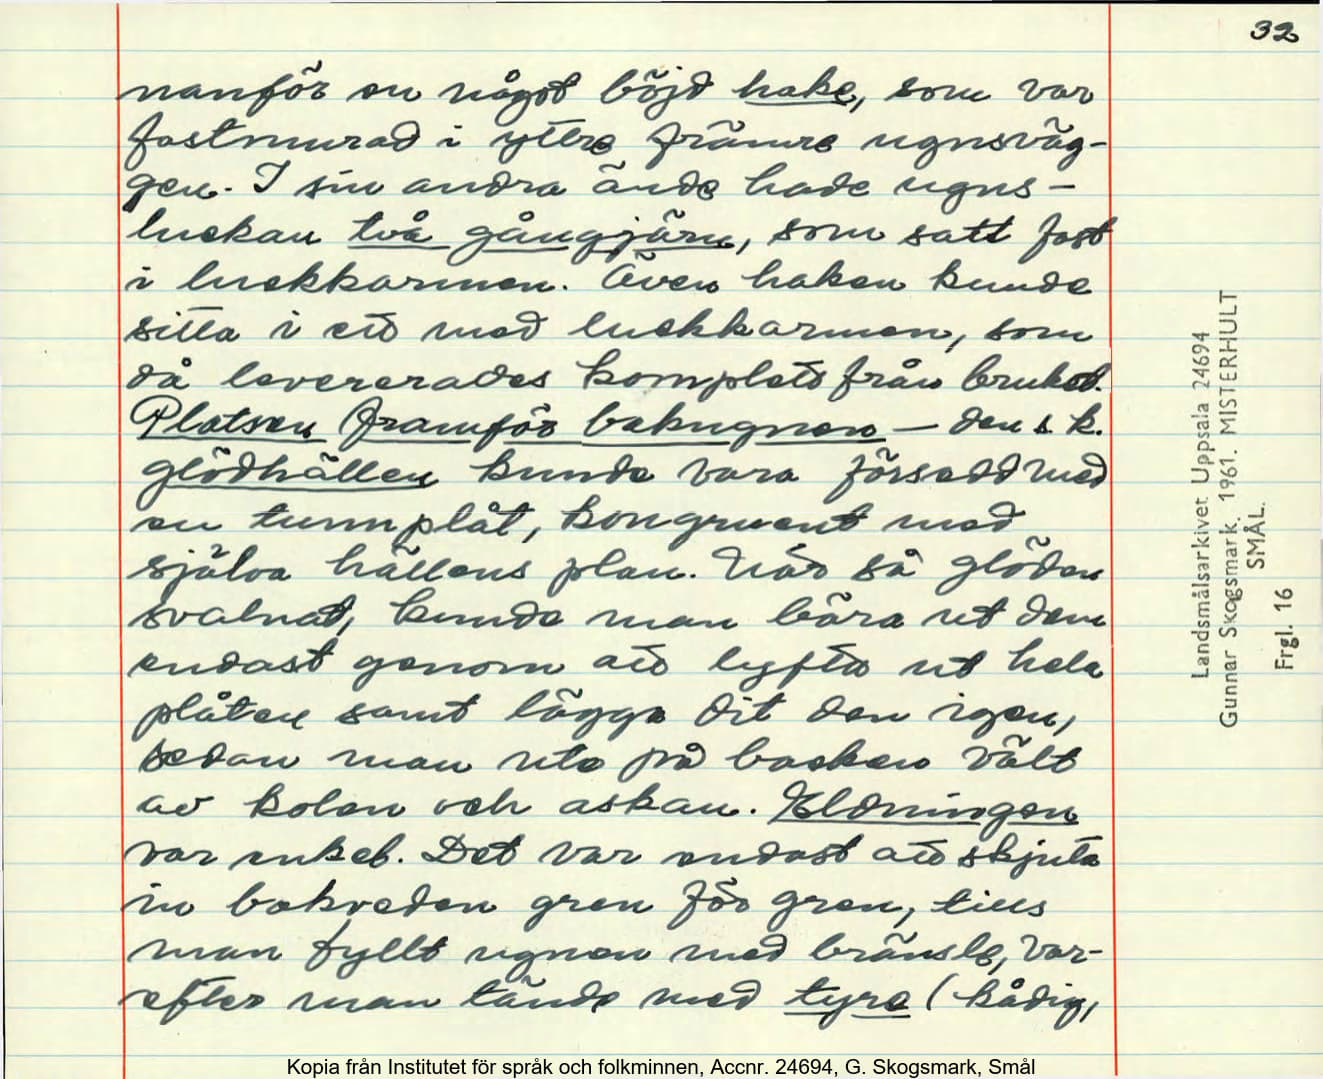 32
nanför en något böjd hake, som var
fastmurad i yttre främre ugnsväg-
gen. I sin andra ände hade ugns-
luckan två gångjärn, som satt fast
i luckkarmen. Även haken kunde
sitta i ett med luckkarmen, som
då levererades komplett från bruket.
Platsen framför bakugnen – den s.k.
glödhällen kunde vara försedd med
en tunnplåt, kongruent med
själva hällens plan. När så glöden
svalnat, kunde man bära ut den
endast genom att lyfta ut hela
plåten samt lägga dit den igen,
sedan man ute på backen vält
av kolen och askan. Eldningen
var enkel. Det var endast att skjuta
in bakveden gren för gren, tills
man fyllt ugnen med bränsle, var-
efter man tände med tyre (kådig,
Landsmålsarkivet Uppsala 24694
Gunnar Skogsmark. 1961. MISTERHULT
SMÅL.
Frgl. 16
Kopia från Institutet för språk och folkminnen, Accnr. 24694, G. Skogsmark, Smål